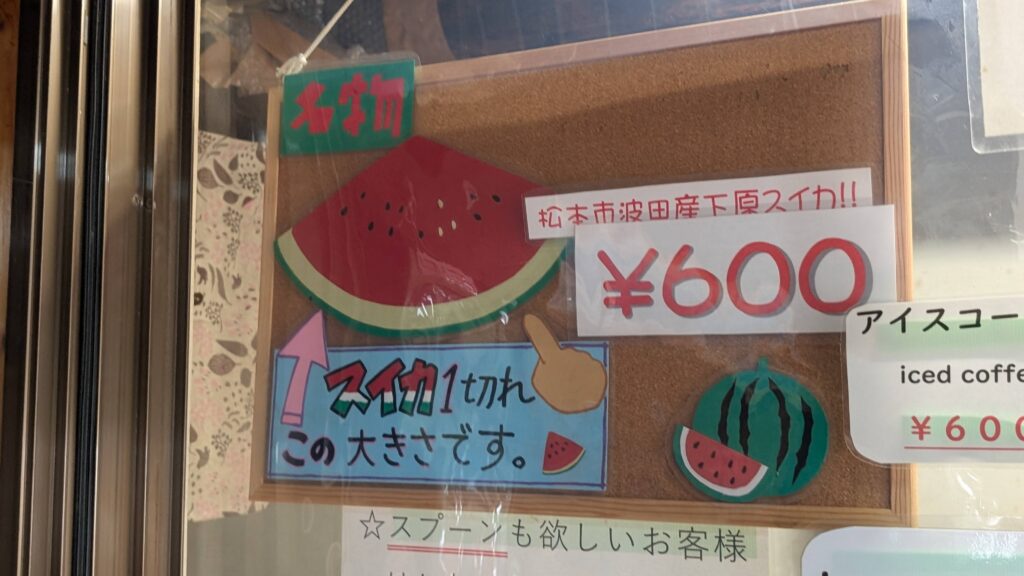 名物
松本市波田産下原スイカ!!
¥600
スイカ1切れ
この大きさです。
アイスコー
iced coffe
¥600
☆スプーンも欲しいお客様